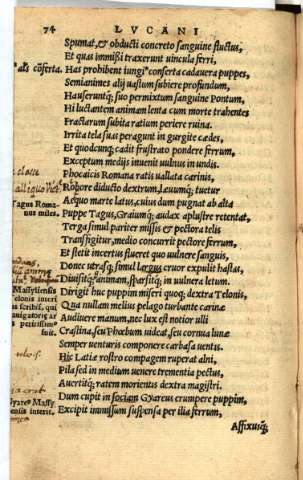 74 LVCANI
Spumat, & obducti concreto sanguine fluctus,
Et quas immißi traxerunt uincula ferri,
Has prohibent iungi conserta cadauera puppes,
Semianimes alij uastum subiere profundum,
Hauseruntq; suo permixtum sanguine Pontum,
Hi luctantem animam lenta cum morte trahentes
Fractarum subita ratium periere ruina.
Irrita tela suas peragunt in gurgite cædes,
Et quodcunq; cadit frustrato pondere ferrum,
Exceptum medijs inuenit uulnus in undis.
Phocaicis Romana ratis uallata carinis,
Robore diducto dextrum, læuumq; tuetur
Tagus Roma-
nus miles.
Aequo marte latus, cuius dum pugnat ab alta
Puppe Tagus, Graiumq; audax aplustre retentat,
Terga simul pariter missis & pectora telis
Transfigitur, medio concurrit pectore ferrum,
Et stetit incertus flueret quo uulnere sanguis,
Donec utrasq; simul largus cruor expulit hastas,
Diuisitq; animam, sparsitq; in uulnera letum.
Dirigit huc puppim miseri quoq; dextra Telonis,
Qua nullam melius pelago turbante carinæ
Audiuere manum, nec lux est notior ulli
Crastina, seu Phœbum uideat, seu cornua lunæ
Semper uenturis componere carbasa uentis.
His Latiæ rostro compagem ruperat alni,
Pila sed in medium uenere trementia pectus,
Auertitq; ratem morientis dextra magistri.
Dum cupit in sociam Gyareus erumpere puppim,
Excipit immissum suspensa per ilia ferrum,
Affixusq;